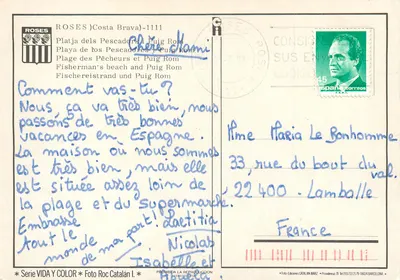 ROSES
ROSES (Costa Brava)-1111
Platja dels Pescadors i Puig Rom
Playa de los Pescadores y Puig Rom
Plage des Pêcheurs et Puig Rom
Fisherman's beach and Puig Rom
Fischereistrand und Puig Rom
Chère Mami
Comment vas-tu?
Nous, ça va très bien, nous
passons de très bonnes
vacances en Espagne.
La maison où nous sommes
est très bien, mais elle
est située assez loin de
la plage et du supermarché.
Embrasse
tout le
monde
de ma part!
Laetitia
Nicolas
Isabelle et
Abuela
45
españa correos
Mme Maria Le Bonhomme
33, rue du bout du
val.
22400 - Lamballe
France
Serie VIDA Y COLOR * Foto Roc Catalan I.